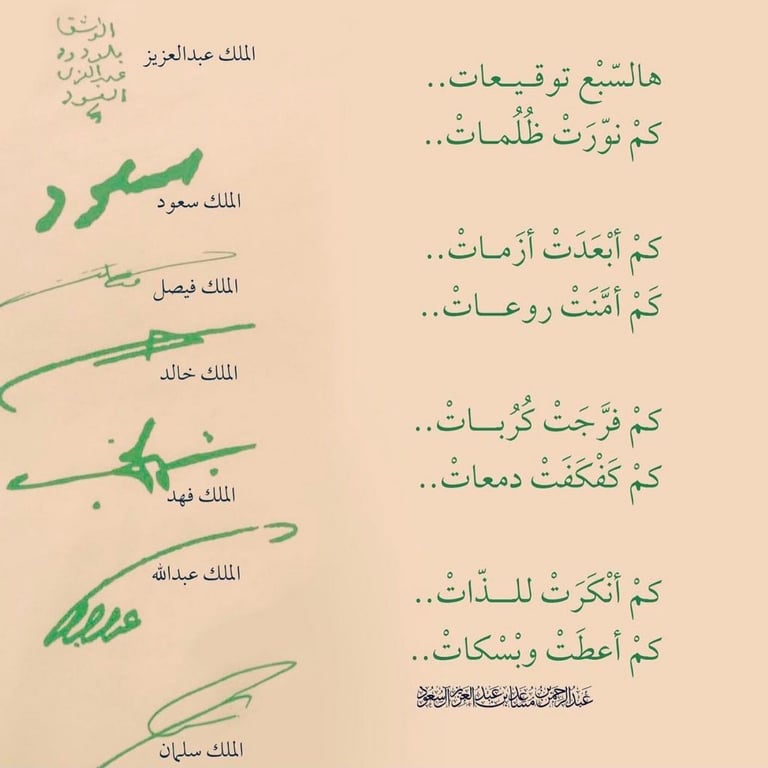 هالسّبْع توقيعات..
كمْ نوّرَتْ ظُلُماتْ..
كمْ أبْعَدَتْ أزَماتْ..
كَمْ أمَّنَتْ روعاتْ..
كمْ فرَّجَتْ كُرُباتْ..
كمْ كَفْكَفَتْ دمعاتْ..
كمْ أنْكَرَتْ للذّاتْ..
كمْ أعطَتْ وبْسْكاتْ..
عبدالرحمن بن مساعد بن عبدالعزيز آل سعود
الملك عبدالعزيز
سعود
الملك سعود
الملك فيصل
الملك خالد
الملك فهد
الملك عبدالله
الملك سلمان